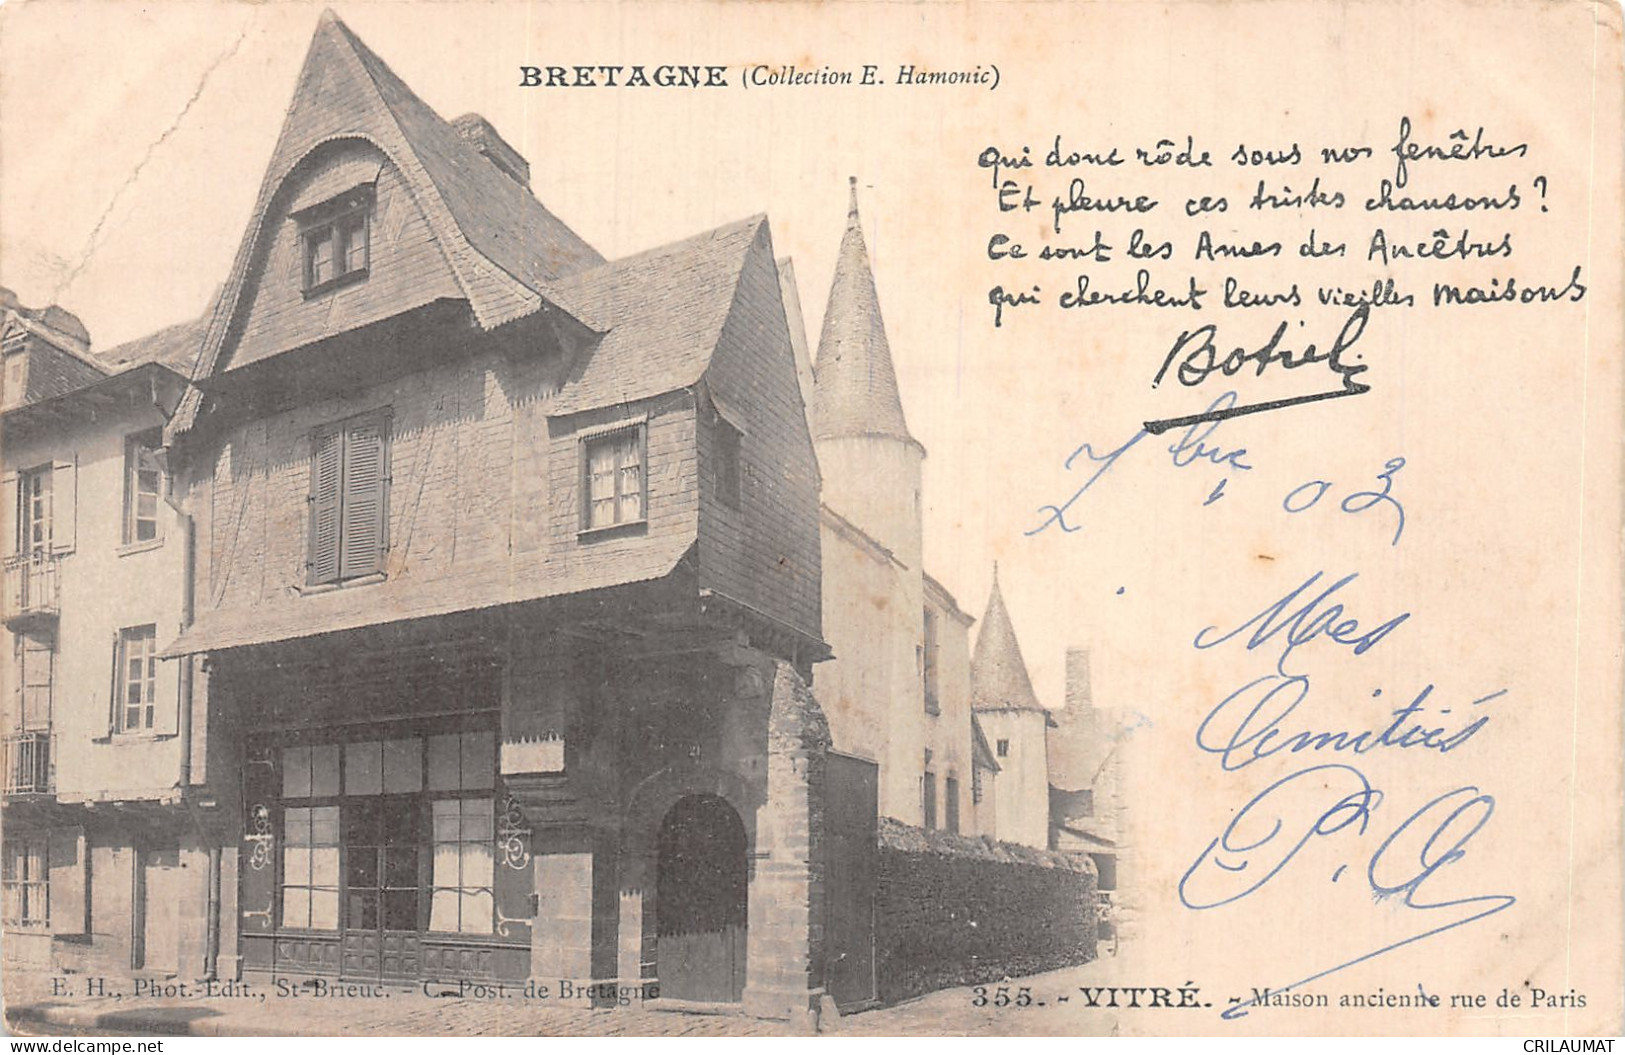 BRETAGNE (Collection E. Hamonic)
qui donc rôde sous nos fenêtres
Et pleure ces tristes chansons ?
Ce sont les Ames des Ancêtres
qui cherchent leurs vieilles maisons
Botrel
7bre 03
Mes
Amitiés
21
E. H., Phot.-Edit., St-Brieuc. - C. Post. de Bretagne
355. - VITRÉ. - Maison ancienne rue de Paris
CRILAUMAT